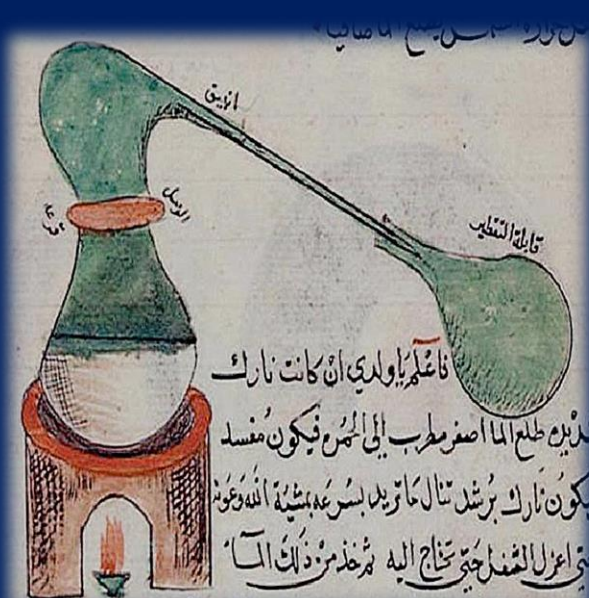 انبيق
الوصل
قرعة
قابلة التقطير
فاعلم ياولدي ان كانت نارك
طلع الما اصفر مطرب الى الحمره فيكون مفسد
يكون نارك برشد تنال ما تريد بسرعه بمشية الله وعونه
اعزل الثفل حتى تحتاج اليه ثم خذ من ذلك الما